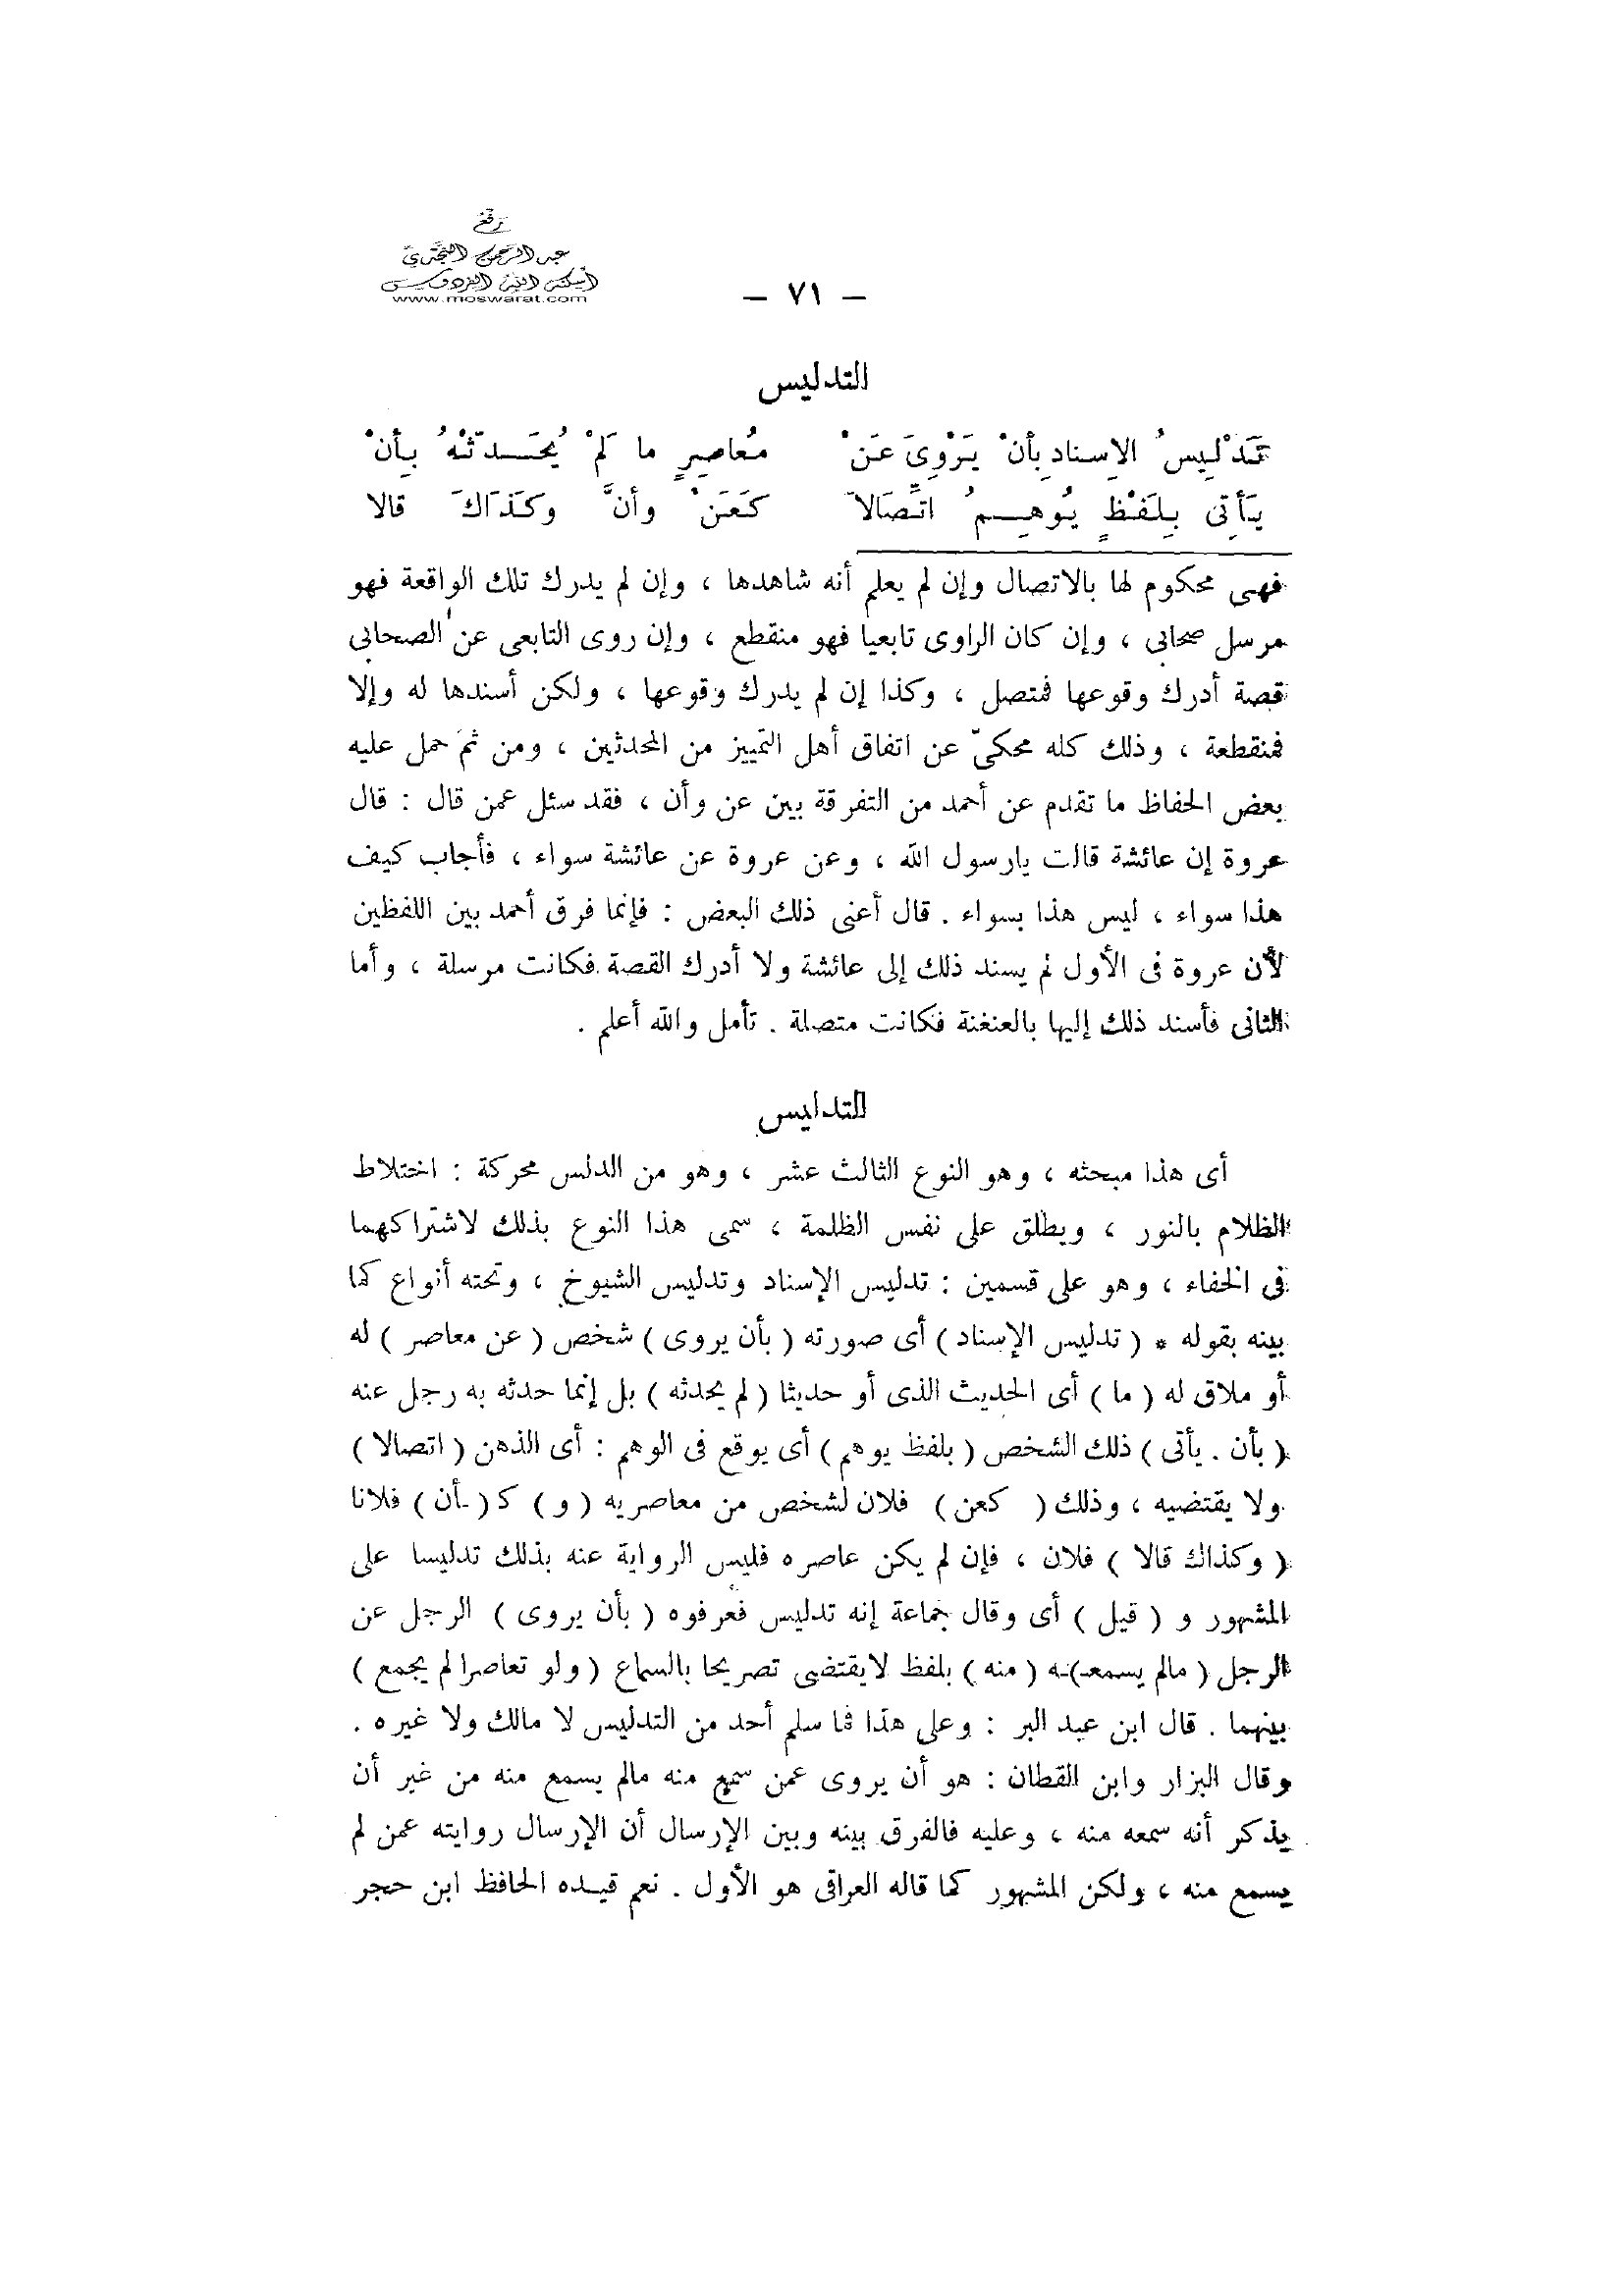 رفع
عبد الرحمن النجدي
أسكنه الله الفردوس
www.moswarat.com
— ٧١ —
التدليس
تَدْلِيسُ الاِسنادِ بِأنْ يَرْوِىَ عَنْ مُعاصِرٍ ما لَمْ يُحَدّثْهُ بِأنْ
يَأتِى بِلَفْظٍ يُوهِمُ اتِّصَالاَ كَعَنْ وأنَّ وكَذَاكَ قالا
فهى محكوم لها بالاتصال وإن لم يعلم أنه شاهدها ، وإن لم يدرك تلك الواقعة فهو
مرسل صحابى ، وإن كان الراوى تابعيا فهو منقطع ، وإن روى التابعى عن الصحابى
قصة أدرك وقوعها فمتصل ، وكذا إن لم يدرك وقوعها ، ولكن أسندها له وإلا
فمنقطعة ، وذلك كله محكىّ عن اتفاق أهل التمييز من المحدثين ، ومن ثمَ حمل عليه
بعض الحفاظ ما تقدم عن أحمد من التفرقة بين عن وأن ، فقد سئل عمن قال : قال
عروة إن عائشة قالت يارسول الله ، وعن عروة عن عائشة سواء ، فأجاب كيف
هذا سواء ، ليس هذا بسواء . قال أعنى ذلك البعض : فإنما فرق أحمد بين اللفظين
لأن عروة فى الأول لم يسند ذلك إلى عائشة ولا أدرك القصة فكانت مرسلة ، وأما
الثانى فأسند ذلك إليها بالعنغنة فكانت متصلة . تأمل والله أعلم .
التدليس
أى هذا مبحثه ، وهو النوع الثالث عشر ، وهو من الدلس محركة : اختلاط
الظلام بالنور ، ويطلق على نفس الظلمة ، سمى هذا النوع بذلك لاشتراكهما
فى الخفاء ، وهو على قسمين : تدليس الإسناد وتدليس الشيوخ ، وتحته أنواع كما
بينه بقوله * ( تدليس الإسناد ) أى صورته ( بأن يروى ) شخص ( عن معاصر ) له
أو ملاق له ( ما ) أى الحديث الذى أو حديثا ( لم يحدثه ) بل إنما حدثه به رجل عنه
( بأن . يأتى ) ذلك الشخص ( بلفظ يوهم ) أى يوقع فى الوهم : أى الذهن ( اتصالا )
ولا يقتضيه ، وذلك ( كعن ) فلان لشخص من معاصريه ( و ) كـ ( ـأن ) فلانا
( وكذاك قالا ) فلان ، فإن لم يكن عاصره فليس الرواية عنه بذلك تدليسا على
المشهور و ( قيل ) أى وقال جماعة إنه تدليس فعرفوه ( بأن يروى ) الرجل عن
الرجل ( مالم يسمعـ)ـه ( منه ) بلفظ لايقتضى تصريحا بالسماع ( ولو تعاصرا لم يجمع )
بينهما . قال ابن عبد البر : وعلى هذا فما سلم أحد من التدليس لا مالك ولا غيره .
وقال البزار وابن القطان : هو أن يروى عمن سمع منه مالم يسمع منه من غير أن
يذكر أنه سمعه منه ، وعليه فالفرق بينه وبين الإرسال أن الإرسال روايته عمن لم
يسمع منه ، ولكن المشهور كما قاله العراقى هو الأول . نعم قيده الحافظ ابن حجر